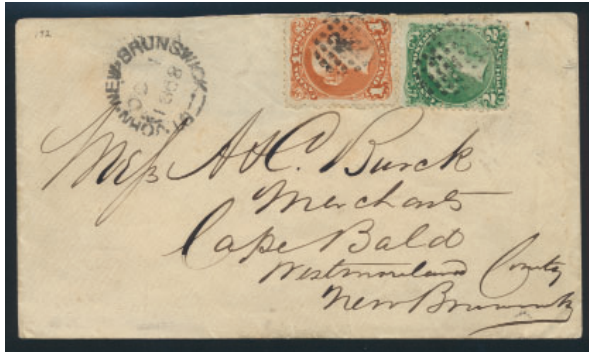 192
ST JOHN NEW-BRUNSWICK
OC 1
1868
1 1
2 2
Mess A & C. Burck
Merchants
Cape Bald
Westmoreland County
New Brunswick